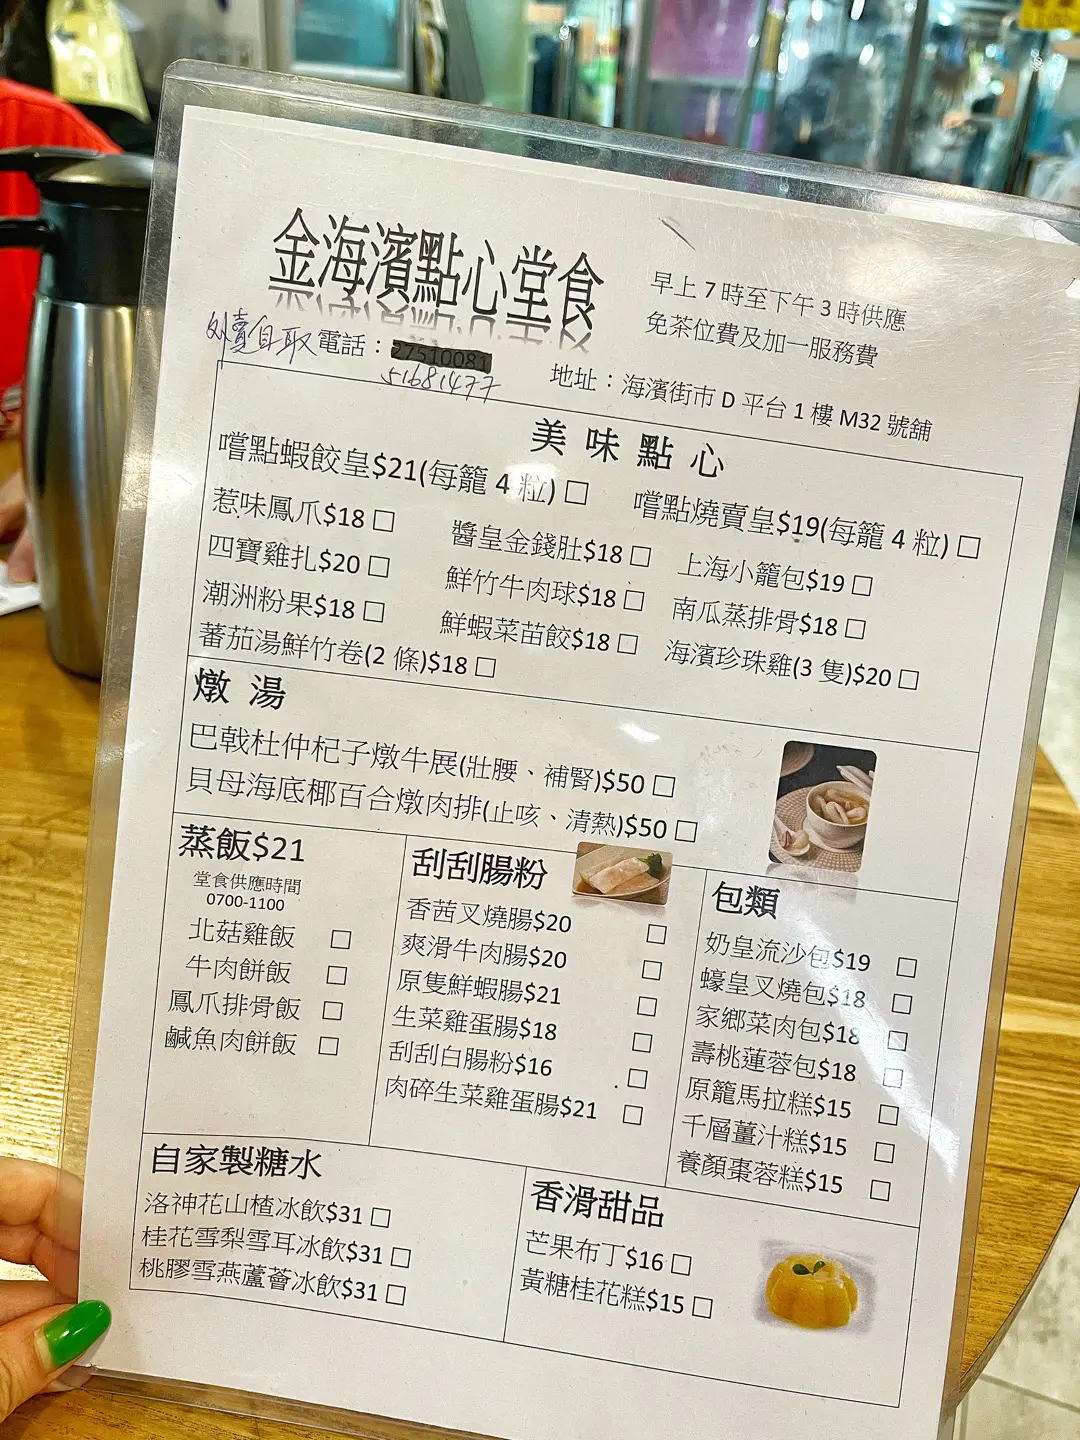 金海濱點心堂食
早上 7 時至下午 3 時供應
免茶位費及加一服務費
外賣自取 電話：27510081
51681477
地址：海濱街市 D 平台 1 樓 M32 號舖
美味點心
嚐點蝦餃皇$21(每籠 4 粒) □ 嚐點燒賣皇$19(每籠 4 粒) □
惹味鳳爪$18 □ 醬皇金錢肚$18 □ 上海小籠包$19 □
四寶雞扎$20 □ 鮮竹牛肉球$18 □ 南瓜蒸排骨$18 □
潮洲粉果$18 □ 鮮蝦菜苗餃$18 □ 海濱珍珠雞(3 隻)$20 □
蕃茄湯鮮竹卷(2 條)$18 □
燉 湯
巴戟杜仲杞子燉牛展(壯腰、補腎)$50 □
貝母海底椰百合燉肉排(止咳、清熱)$50 □
蒸飯$21
堂食供應時間
0700-1100
北菇雞飯 □
牛肉餅飯 □
鳳爪排骨飯 □
鹹魚肉餅飯 □
刮刮腸粉
香茜叉燒腸$20 □
爽滑牛肉腸$20 □
原隻鮮蝦腸$21 □
生菜雞蛋腸$18 □
刮刮白腸粉$16 □
肉碎生菜雞蛋腸$21 □
包類
奶皇流沙包$19 □
蠔皇叉燒包$18 □
家鄉菜肉包$18 □
壽桃蓮蓉包$18 □
原籠馬拉糕$15 □
千層薑汁糕$15 □
養顏棗蓉糕$15 □
自家製糖水
洛神花山楂冰飲$31 □
桂花雪梨雪耳冰飲$31 □
桃膠雪燕蘆薈冰飲$31 □
香滑甜品
芒果布丁$16 □
黃糖桂花糕$15 □